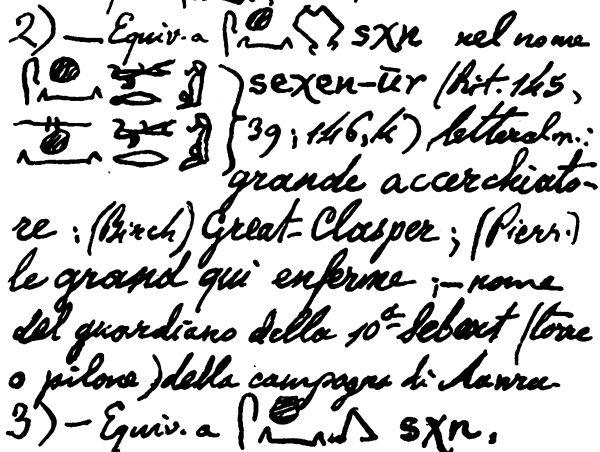 2) — Equiv. a sχn nel nome
seχen-ūr (Rit. 145,
39; 146, k) letteralm.:
grande accerchiato-
re; (Birch) Great-Clasper; (Pierr.)
le grand qui enferme; — nome
del guardiano della 10ª Sebχet (torre
o pilone) della campagna di Aanru.
3) — Equiv. a sχn.